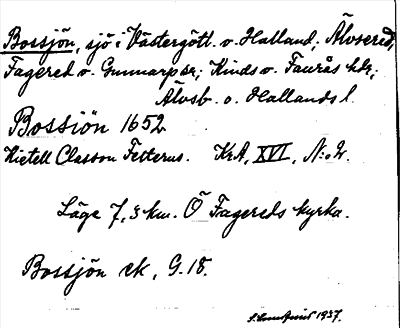 Bossjön, sjö i Västergötl. o. Halland; Älvsered,
Fagered o. Gunnarp sr; Kinds o. Faurås hdr;
Älvsb. o. Hallands l.
Bossiön 1652
Kietell Classon Felterus. KrA, XVI, N:o 2.
Läge 7,3 km. Ö Fagereds kyrka.
Bossjön ek, G. 18.
1937.